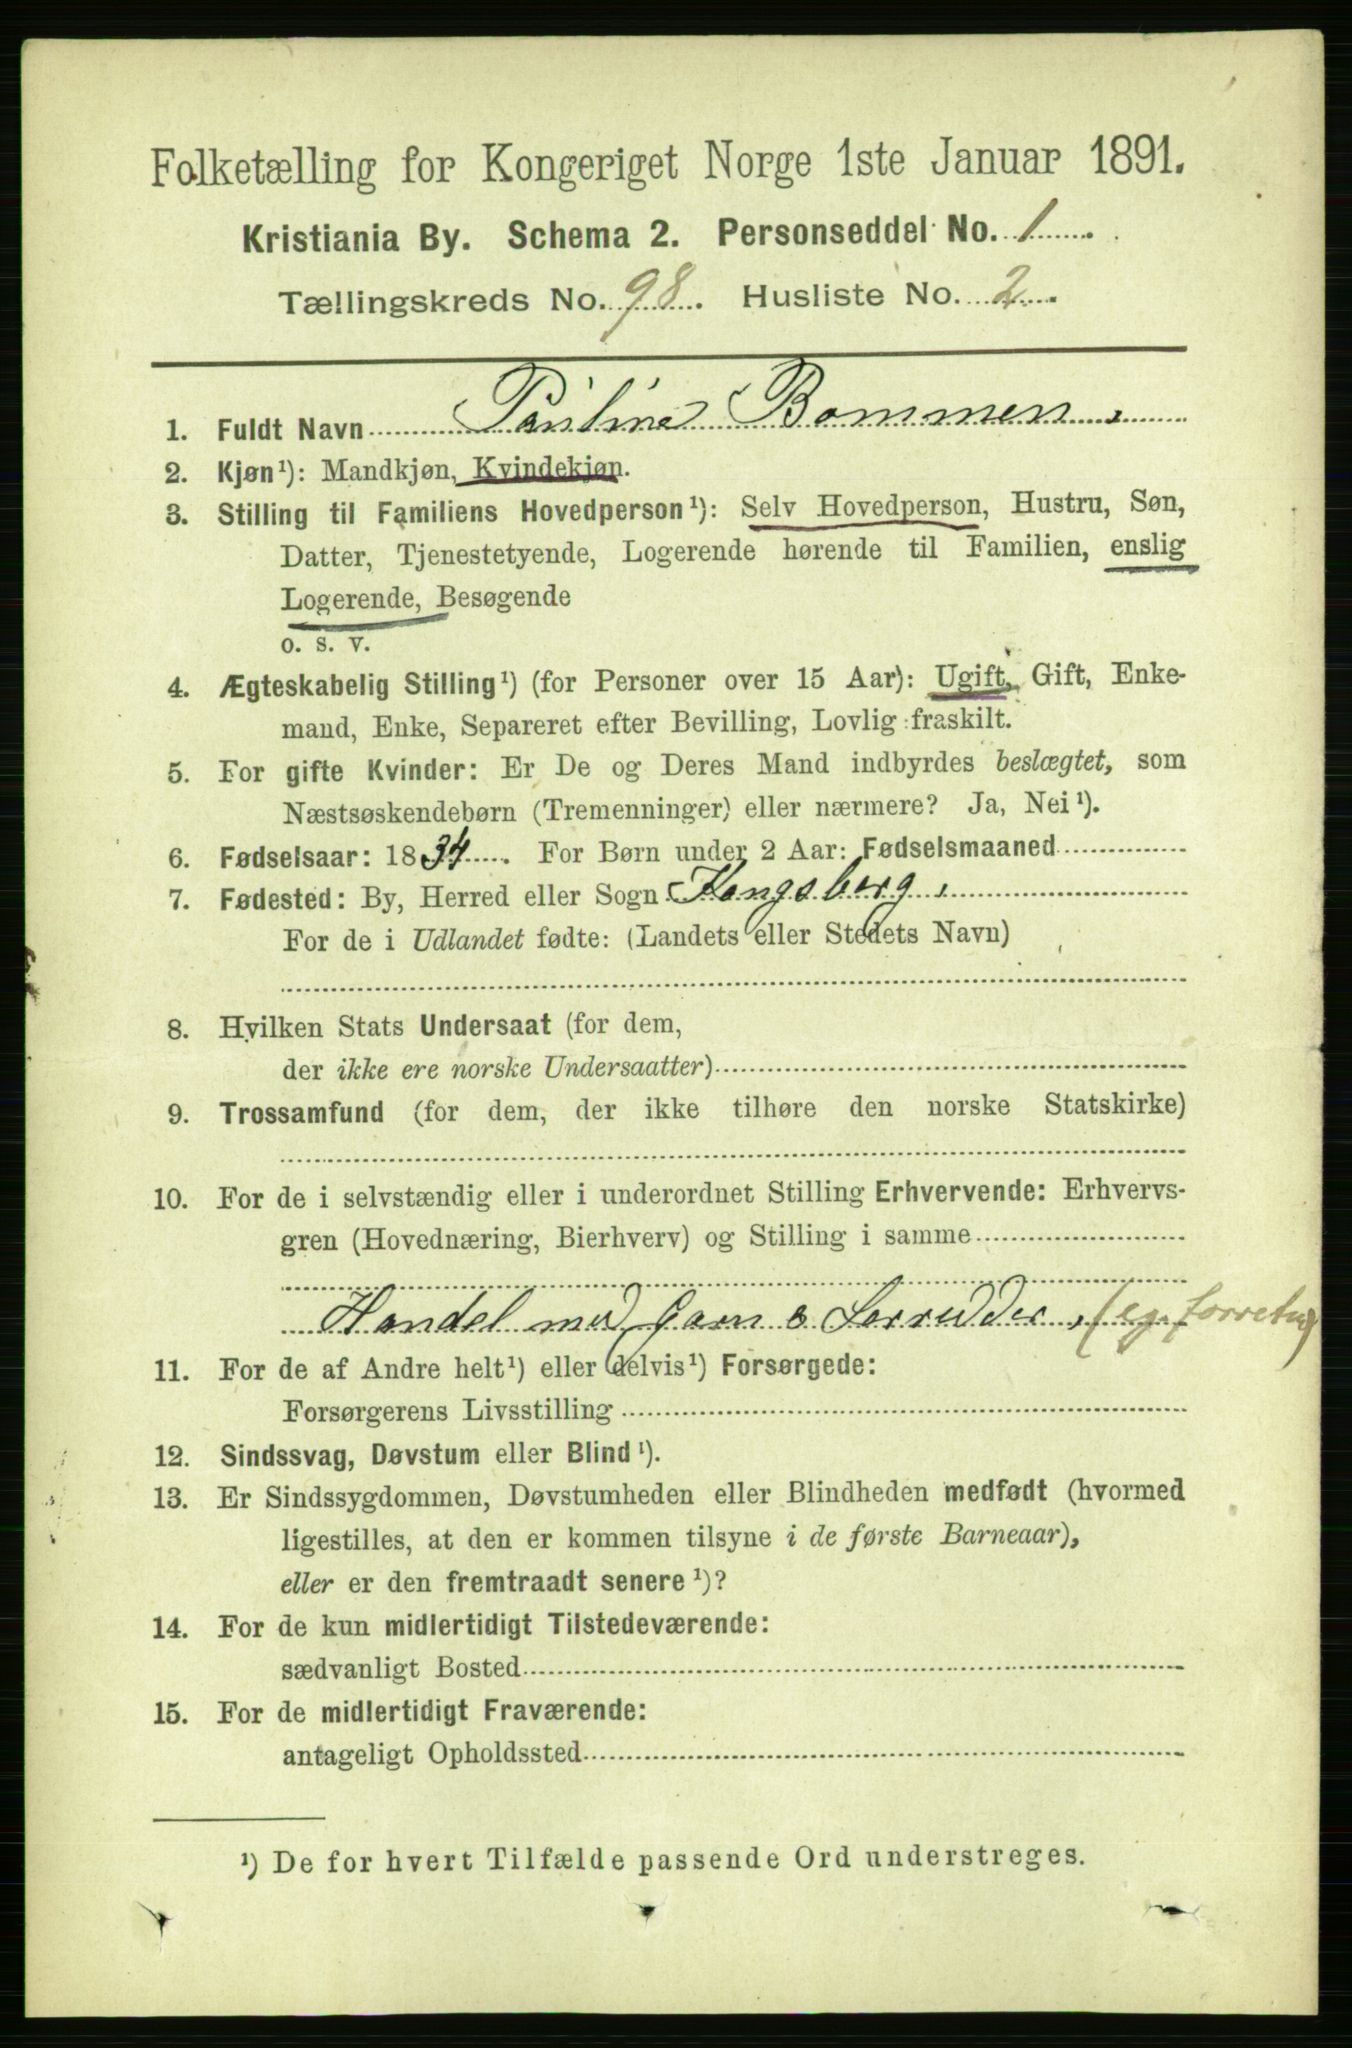 Folketælling for Kongeriget Norge 1ste Januar 1891.
Kristiania By. Schema 2. Personseddel No. 1.
Tællingskreds No. 98. Husliste No. 2.
1. Fuldt Navn Pauline Bommen,
2. Kjøn¹): Mandkjøn, Kvindekjøn.
3. Stilling til Familiens Hovedperson¹): Selv Hovedperson, Hustru, Søn,
Datter, Tjenestetyende, Logerende hørende til Familien, enslig
Logerende, Besøgende
o. s. v.
4. Ægteskabelig Stilling¹) (for Personer over 15 Aar): Ugift, Gift, Enke-
mand, Enke, Separeret efter Bevilling, Lovlig fraskilt.
5. For gifte Kvinder: Er De og Deres Mand indbyrdes beslægtet, som
Næstsøskendebørn (Tremenninger) eller nærmere? Ja, Nei¹).
6. Fødselsaar: 1834. For Børn under 2 Aar: Fødselsmaaned
7. Fødested: By, Herred eller Sogn Kongsberg,
For de i Udlandet fødte: (Landets eller Stedets Navn)
8. Hvilken Stats Undersaat (for dem,
der ikke ere norske Undersaatter)
9. Trossamfund (for dem, der ikke tilhøre den norske Statskirke)
10. For de i selvstændig eller i underordnet Stilling Erhvervende: Erhvervs-
gren (Hovednæring, Bierhverv) og Stilling i samme
Handel med Garn & , (eg. forretng)
11. For de af Andre helt¹) eller delvis¹) Forsørgede:
Forsørgerens Livsstilling
12. Sindssvag, Døvstum eller Blind¹).
13. Er Sindssygdommen, Døvstumheden eller Blindheden medfødt (hvormed
ligestilles, at den er kommen tilsyne i de første Barneaar),
eller er den fremtraadt senere¹)?
14. For de kun midlertidigt Tilstedeværende:
sædvanligt Bosted
15. For de midlertidigt Fraværende:
antageligt Opholdssted
¹) De for hvert Tilfælde passende Ord understreges.